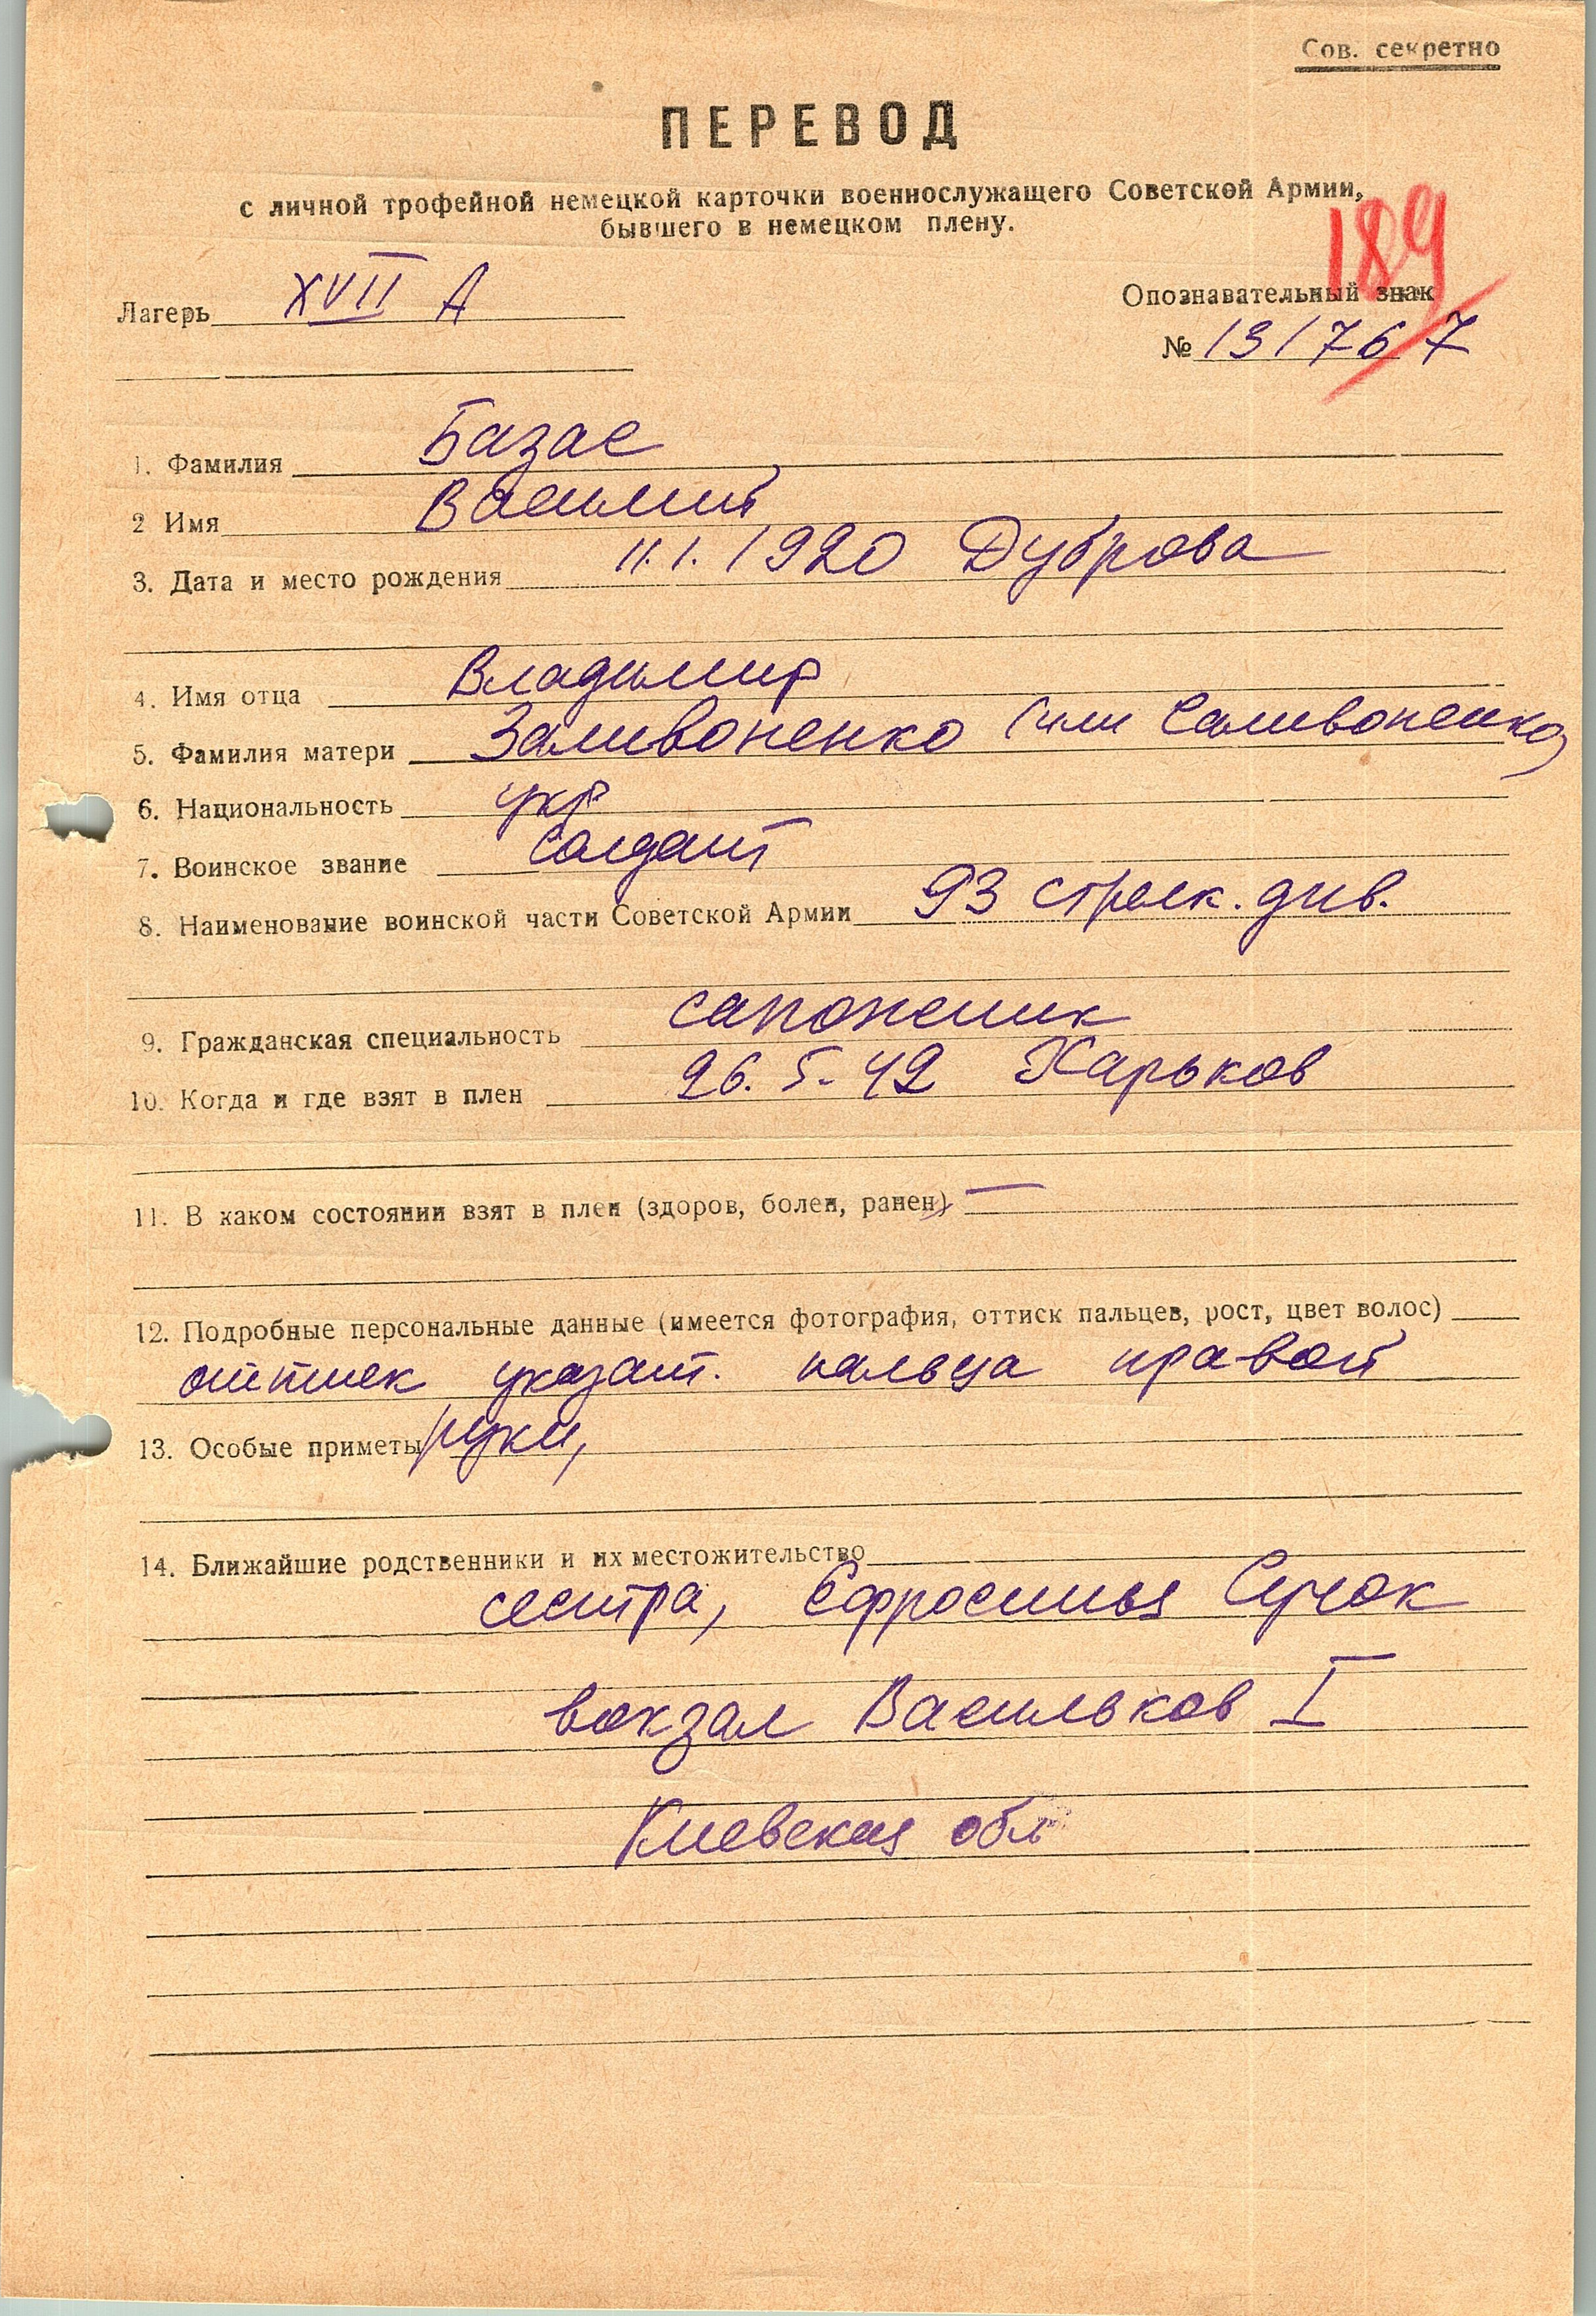 Сов. секретно
ПЕРЕВОД
с личной трофейной немецкой карточки военнослужащего Советской Армии,
бывшего в немецком плену.
189
Лагерь XVII А
Опознавательный знак
№ 131767
1. Фамилия Базас
2 Имя Василий
3. Дата и место рождения 11.1.1920 Дуброва
4. Имя отца Владимир
5. Фамилия матери Заливоненко (или Саливоненко)
6. Национальность укр
7. Воинское звание солдат
8. Наименование воинской части Советской Армии 93 стрелк. див.
9. Гражданская специальность сапожник
10. Когда и где взят в плен 26.5.42 Харьков
11. В каком состоянии взят в плен (здоров, болен, ранен) —
12. Подробные персональные данные (имеется фотография, оттиск пальцев, рост, цвет волос)
оттиск указат. пальца правой
13. Особые приметы руки,
14. Ближайшие родственники и их местожительство
сестра, Ефросинья Сучок
вокзал Васильков I
Киевская обл